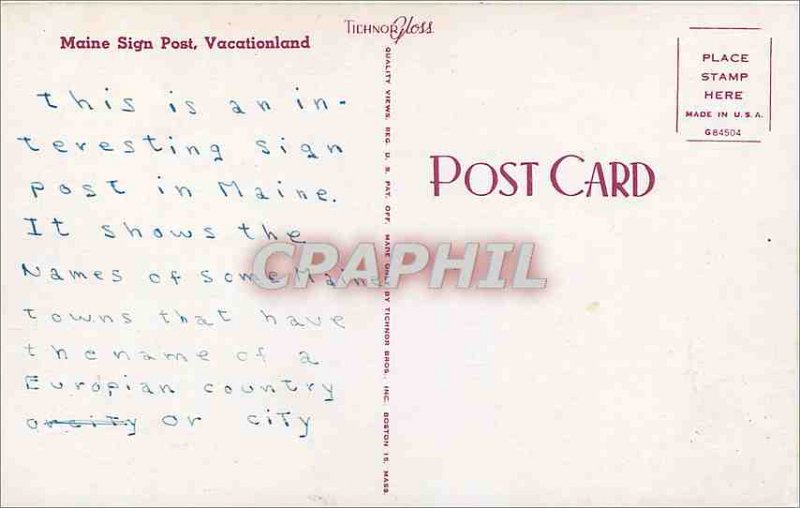 Maine Sign Post, Vacationland
this is an in-
teresting sign
post in Maine.
It shows the
Names of some Maine
towns that have
the name of a
Europian country
orcity or city
TICHNOR Gloss
QUALITY VIEWS, REG. U. S. PAT. OFF. MADE ONLY BY TICHNOR BROS., INC. BOSTON 15, MASS.
POST CARD
PLACE
STAMP
HERE
MADE IN U.S.A.
G84504
CPAPHIL